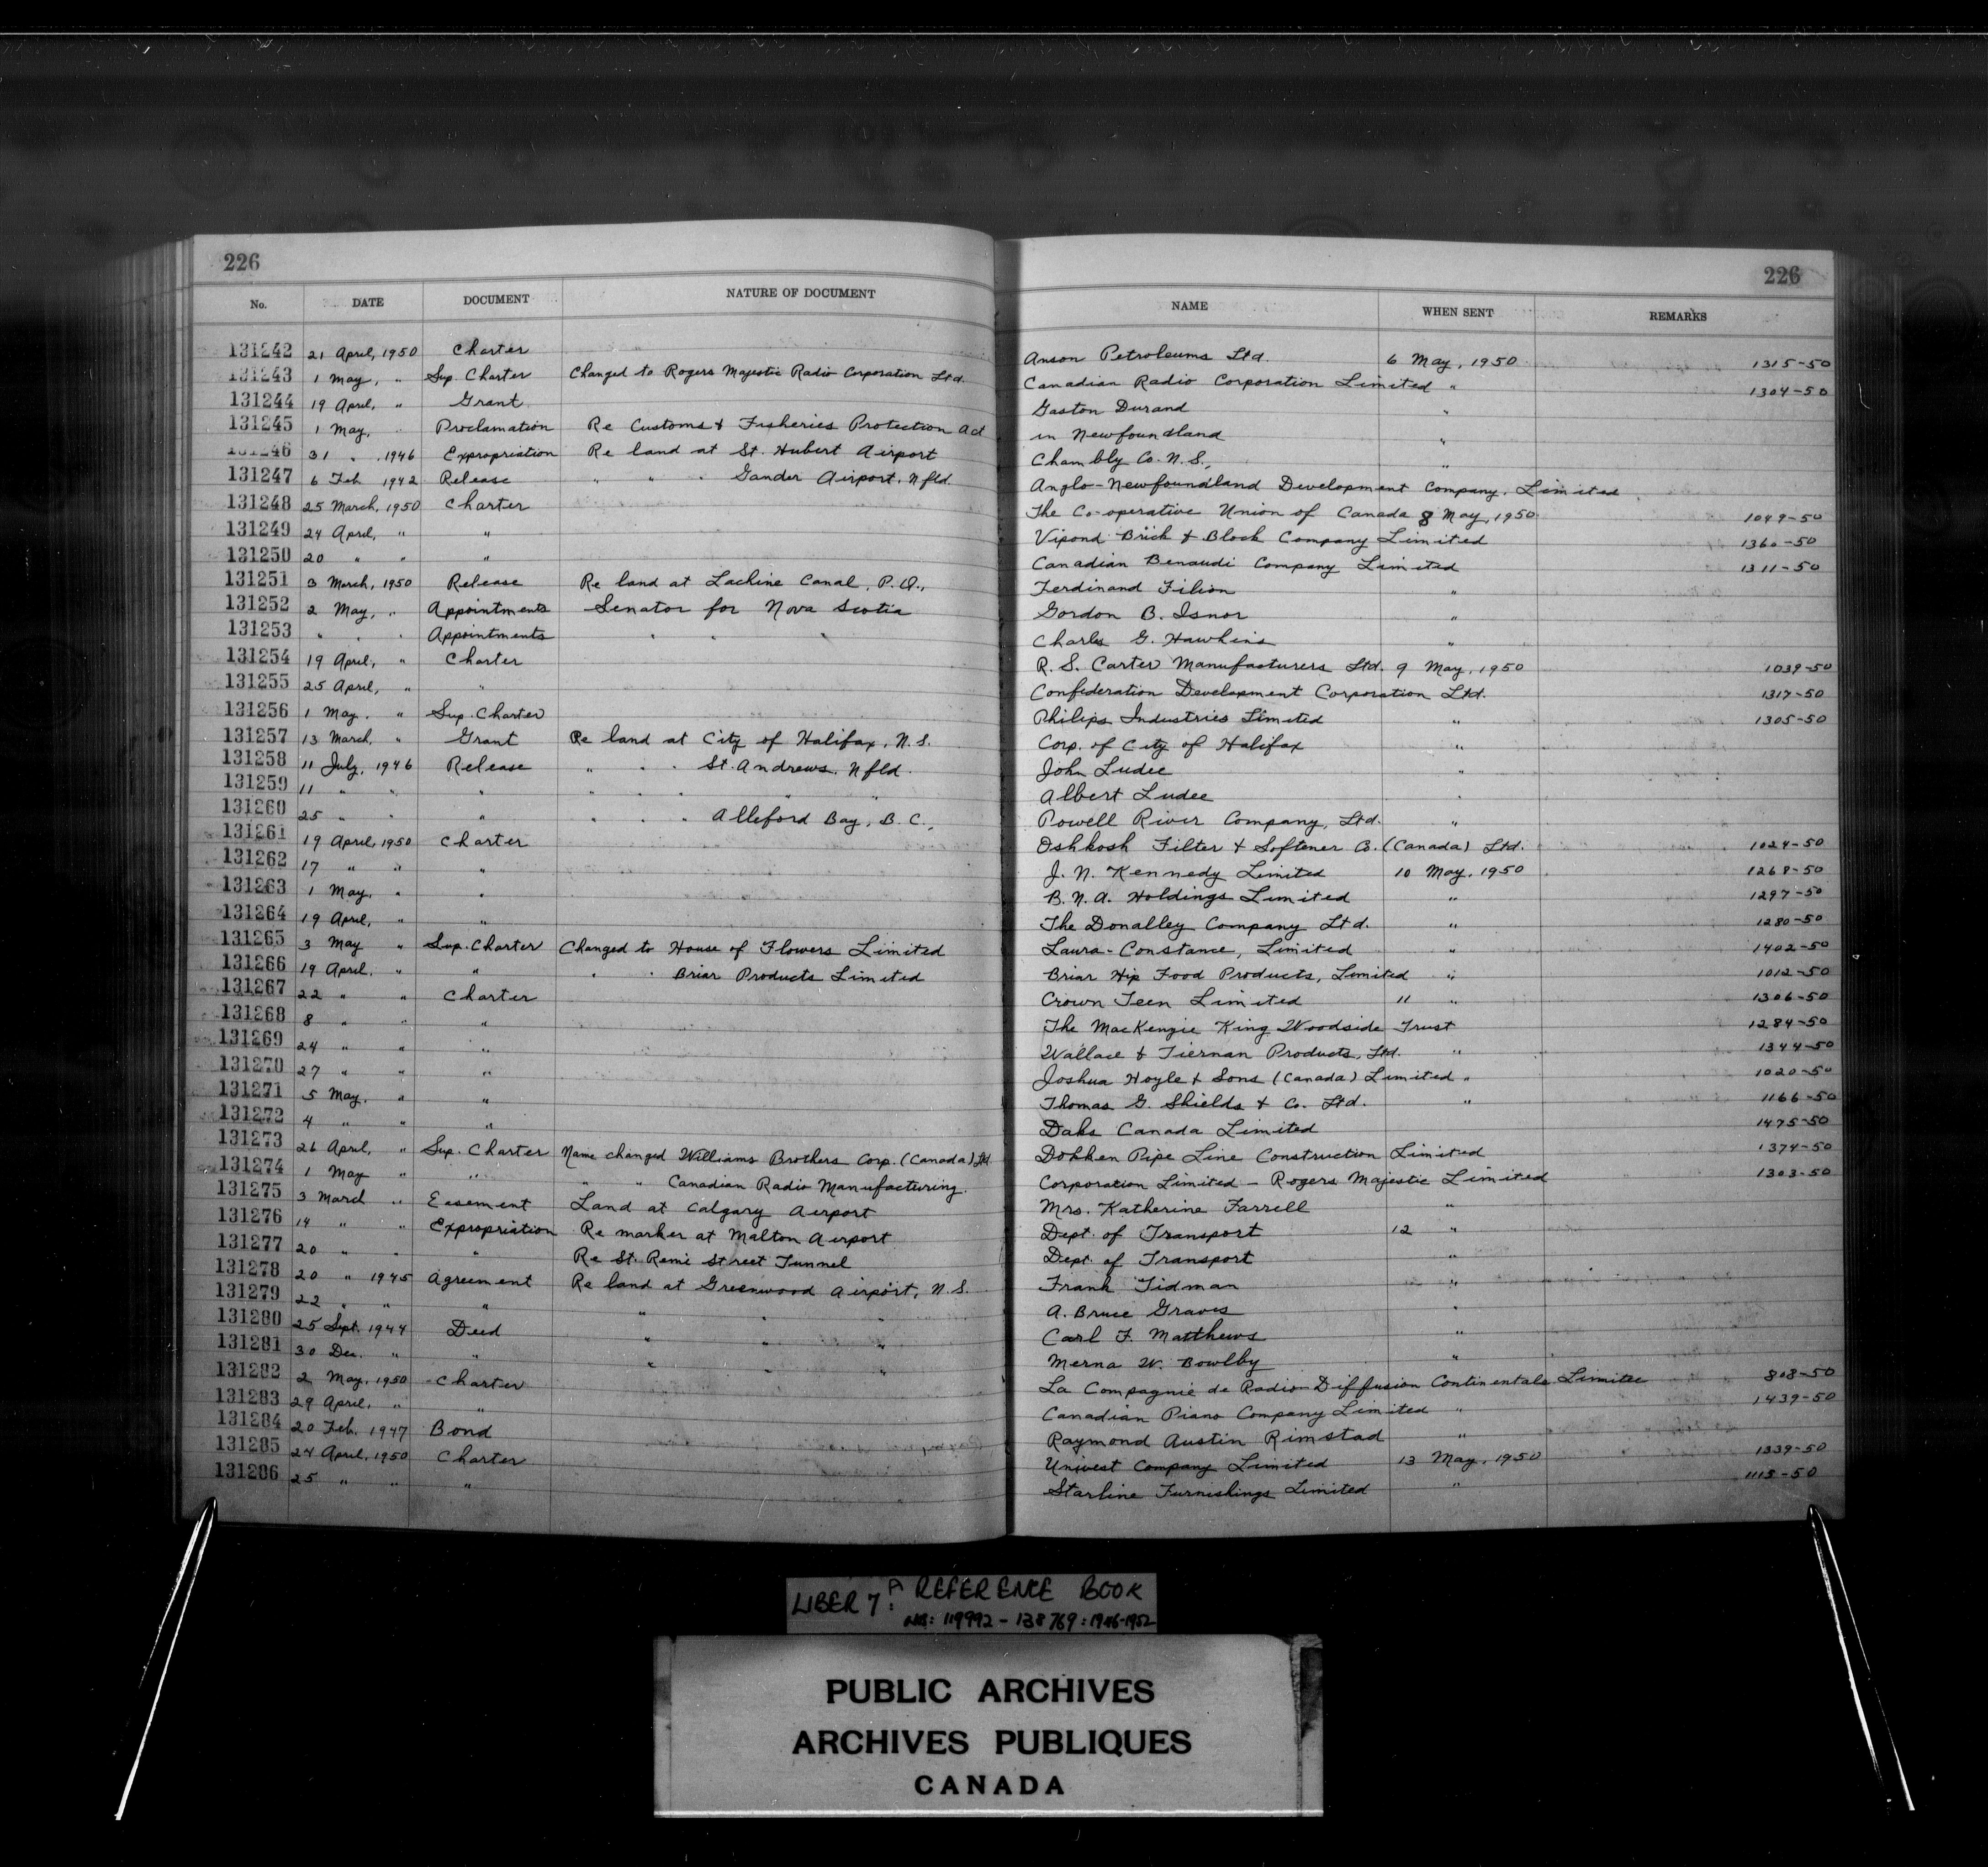 226
No. DATE DOCUMENT NATURE OF DOCUMENT
131242 21 April, 1950 Charter
131243 1 May, " Sup. Charter Changed to Rogers Majestic Radio Corporation Ltd.
131244 19 April, " Grant
131245 1 May, " Proclamation Re Customs & Fisheries Protection Act
131246 31 " 1946 Expropriation Re land at St. Hubert Airport
131247 6 Feb 1942 Release " " " Gander Airport, Nfld.
131248 25 March, 1950 Charter
131249 24 April, " "
131250 20 " " "
131251 3 March, 1950 Release Re land at Lachine Canal, P.Q.,
131252 2 May, " Appointments Senator for Nova Scotia
131253 " " " Appointments " " "
131254 19 April, " Charter
131255 25 April, " "
131256 1 May. " Sup. Charter
131257 13 March, " Grant Re land at City of Halifax, N.S.
131258 11 July, 1946 Release " " " St. Andrews, Nfld.
131259 11 " " " " " " " "
131260 25 " " " " " " Alleford Bay, B.C.,
131261 19 April, 1950 Charter
131262 17 " " "
131263 1 May, " "
131264 19 April, " "
131265 3 May " Sup. Charter Changed to House of Flowers Limited
131266 19 April. " " " " Briar Products Limited
131267 22 " " Charter
131268 8 " " "
131269 24 " " "
131270 27 " " "
131271 5 May, " "
131272 4 " " "
131273 26 April, " Sup. Charter Name changed Williams Brothers Corp. (Canada) Ltd.
131274 1 May " " " " Canadian Radio Manufacturing.
131275 3 March " Easement Land at Calgary Airport
131276 14 " " Expropriation Re marker at Malton Airport
131277 20 " " " Re St. Remi Street Tunnel
131278 20 " 1945 Agreement Re land at Greenwood Airport, N.S.
131279 22 " " " " " "
131280 25 Sept. 1944 Deed " " "
131281 30 Dec. " " " " "
131282 2 May, 1950 Charter
131283 29 April, " "
131284 20 Feb. 1947 Bond
131285 24 April, 1950 Charter
131286 25 " " "
226
NAME WHEN SENT REMARKS
Anson Petroleums Ltd. 6 May, 1950 1315-50
Canadian Radio Corporation Limited " 1304-50
Gaston Durand "
in Newfoundland "
Chambly Co. N.S., "
Anglo-Newfoundland Development Company, Limited
The Co-operative Union of Canada 8 May, 1950 1049-50
Vipond Brick & Block Company Limited 1360-50
Canadian Benaudi Company Limited 1311-50
Ferdinand Filion "
Gordon B. Isnor "
Charles G. Hawkins "
R. S. Carter Manufacturers Ltd. 9 May, 1950 1039-50
Confederation Development Corporation Ltd. 1317-50
Philips Industries Limited " 1305-50
Corp. of City of Halifax "
John Ludee "
Albert Ludee "
Powell River Company, Ltd. "
Oshkosh Filter & Softener Co. (Canada) Ltd. 1024-50
J. N. Kennedy Limited 10 May, 1950 1268-50
B. N. A. Holdings Limited " 1297-50
The Donalley Company Ltd. " 1280-50
Laura-Constance, Limited " 1402-50
Briar Hip Food Products, Limited " 1012-50
Crown Teen Limited 11 " 1306-50
The MacKenzie King Woodside Trust 1284-50
Wallace & Tiernan Products, Ltd. " 1344-50
Joshua Hoyle & Sons (Canada) Limited " 1020-50
Thomas G. Shields & Co. Ltd. " 1166-50
Daks Canada Limited 1475-50
Dokken Pipe Line Construction Limited 1374-50
Corporation Limited - Rogers Majestic Limited 1303-50
Mrs. Katherine Farrell "
Dept. of Transport 12 "
Dept. of Transport "
Frank Tidman "
A. Bruce Graves "
Carl F. Matthews "
Merna W. Bowlby "
La Compagnie de Radio-Diffusion Continentale Limitee 808-50
Canadian Piano Company Limited " 1439-50
Raymond Austin Rimstad "
Univest Company Limited 13 May, 1950 1339-50
Starline Furnishings Limited " 1113-50
LIBER 7A: REFERENCE BOOK
NOS: 119992 - 138769: 1946-1952
PUBLIC ARCHIVES
ARCHIVES PUBLIQUES
CANADA